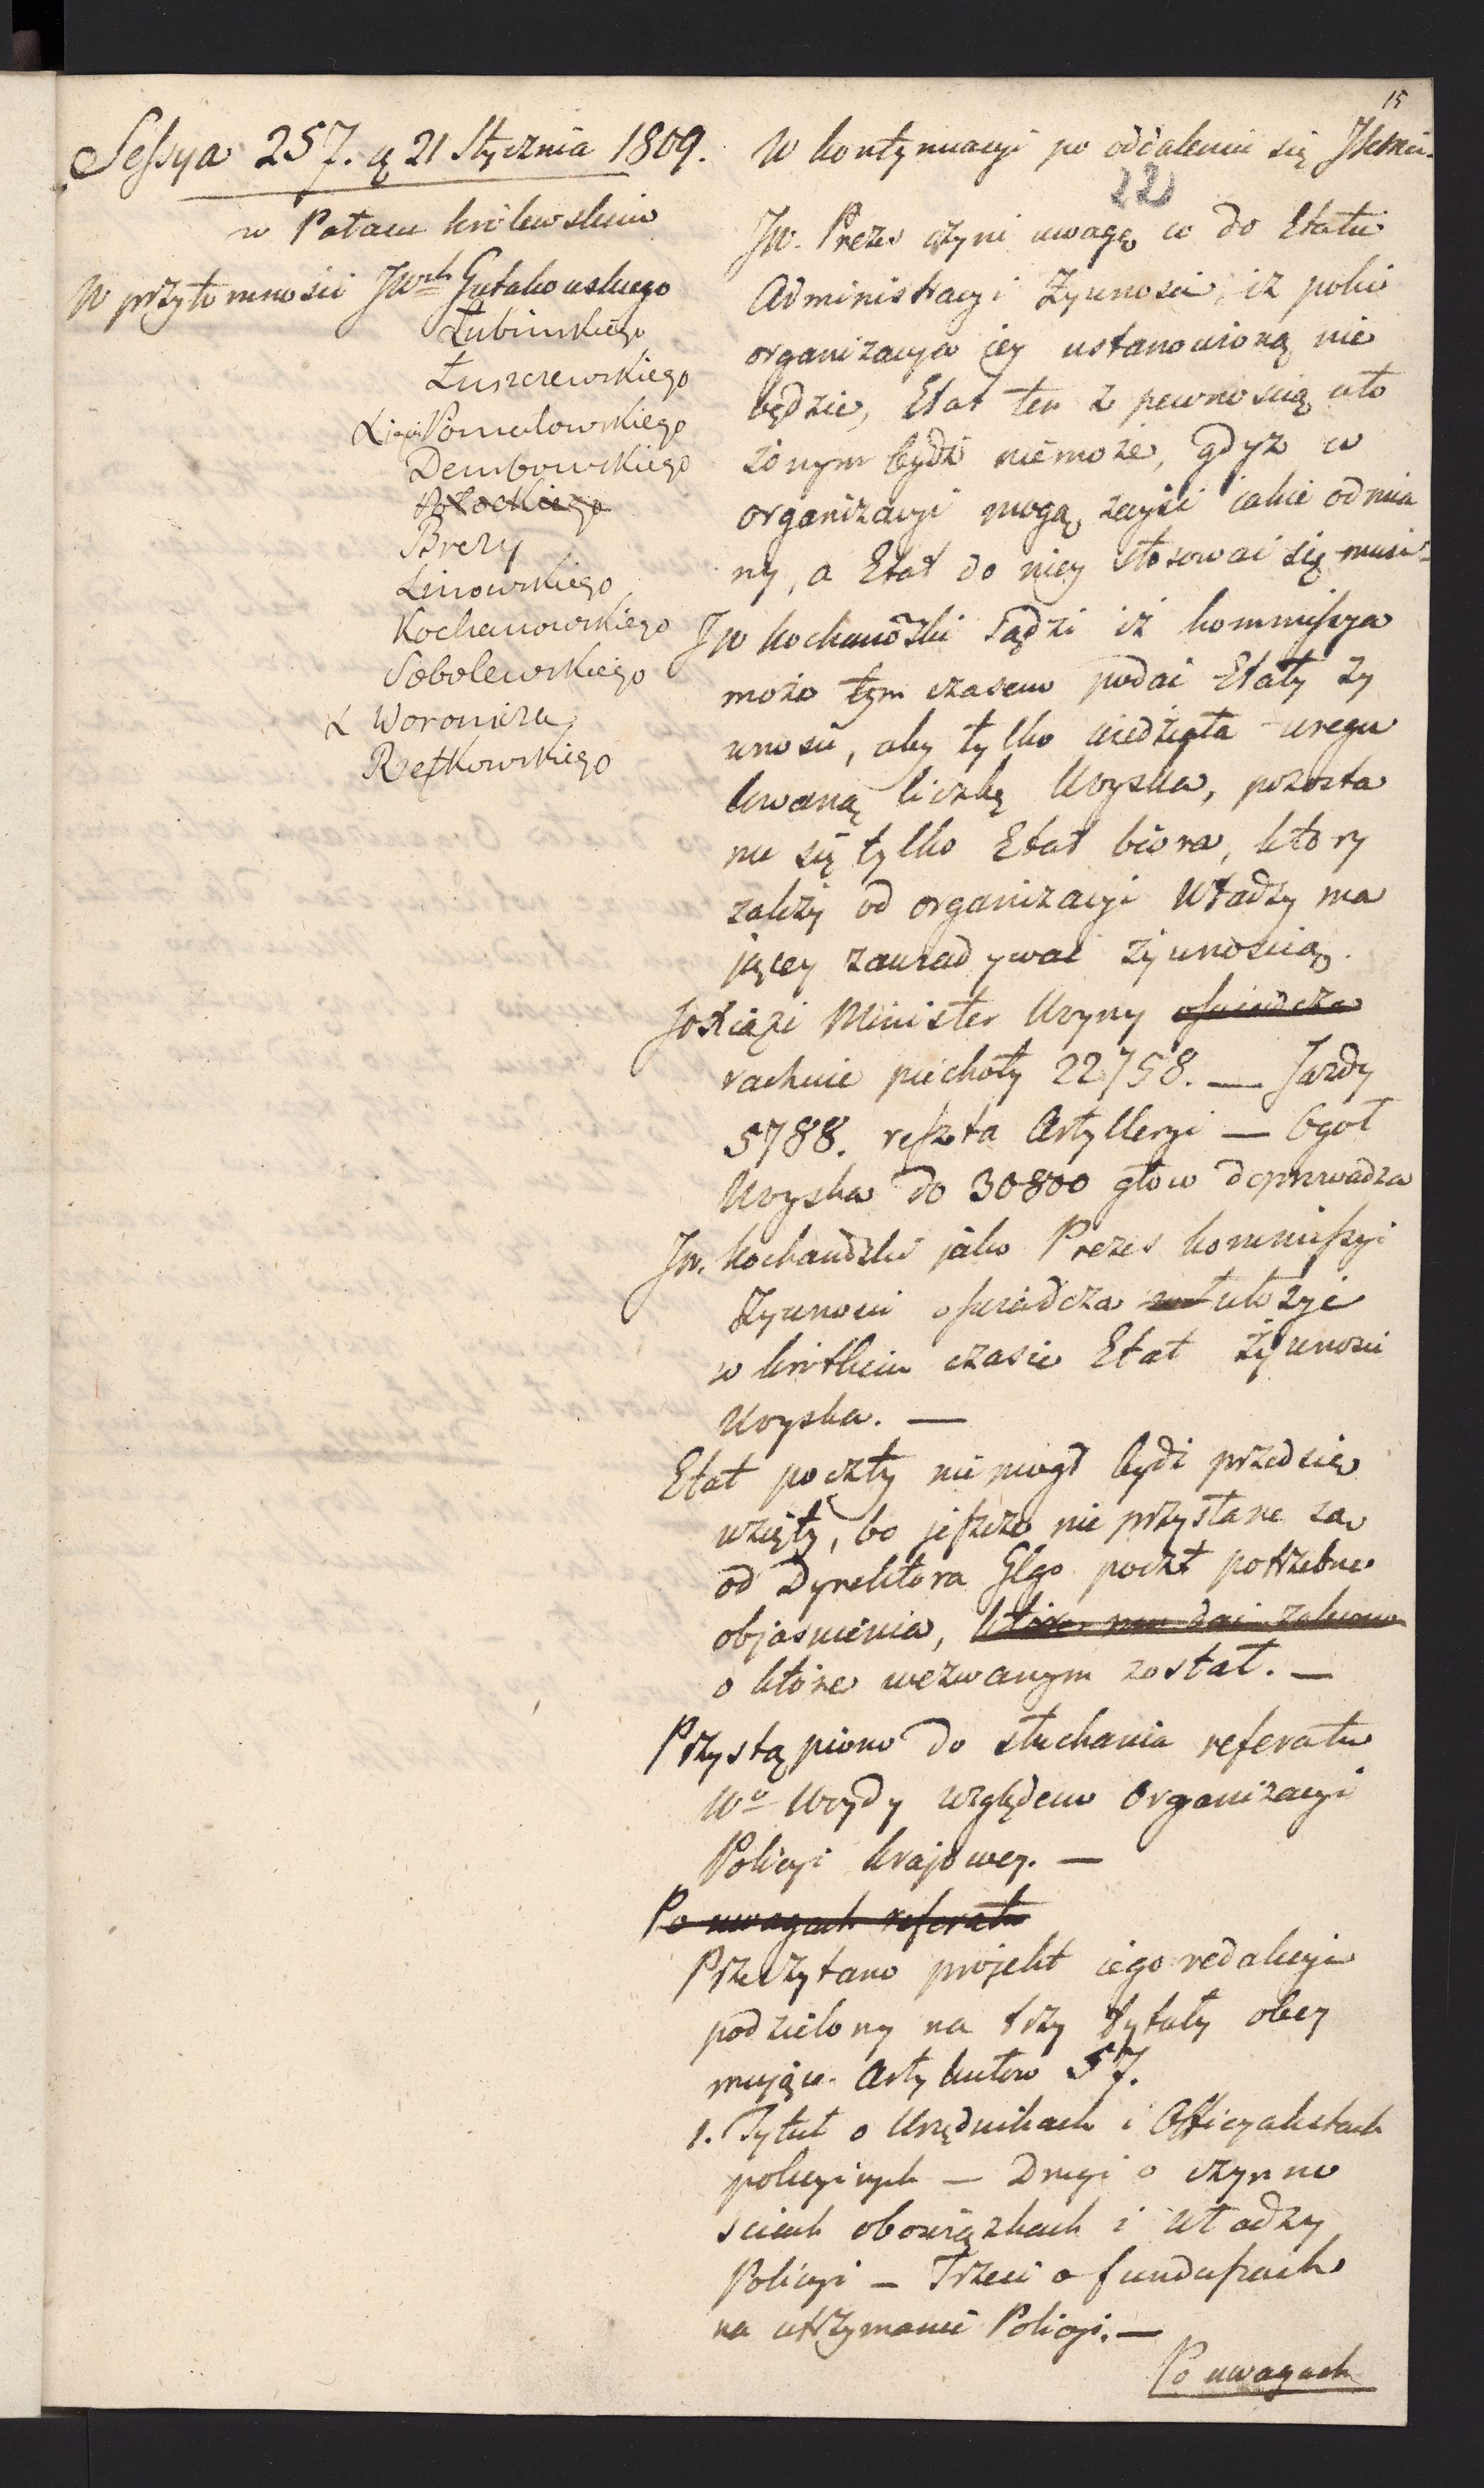 15
Sessya 257. ą 21 Stycznia 1809.
w Pałacu królewskim
W przytomności JWch Gutakowskiego
Łubinskiego
Łuszczewskiego
Poniatowskiego
Dembowskiego
Potockiego
Brezy
Linowskiego
Kochanowskiego
Sobolewskiego
X Woronicza
Rętkowskiego
W kontynuacyi po oddaleniu się
22
JW. Prezes czyni uwagę co do Etatu
Administracyi Żywności, iż poki
organizacya iey ustanowioną nie
będzie, Etat ten z pewnością uło
żonym bydź niemoże, gdyż w
organizacyi mogą zayść iakie odmia
ny, a Etat do niey stosować się musi
JW Kochanowski sądzi iż kommissya
może tym czasem podać Etaty ży
wności, aby tylko wiedziała uregu
lowaną liczbę Woyska, pozosta
nie się tylko Etat biora, który
zależy od organizacyi Władzy ma
jącey zawiadywać żywnością.
JO Xiąże Minister Woyny oświadcza
rachuie piechoty 22758. — Jazdy
5788. reszta Artylleryi — Ogół
Woyska do 30800 głow doprowadza
JW. Kochanowski jako Prezes kommissyi
Żywności oświadcza ułożyć
w krótkim czasie Etat Żywności
Woyska. —
Etat poczty niemógł bydź przedsię
wzięty, bo jeszcze nie przysłane są
od Dyrektora Glgo poczt potrzebne
objaśnienia, które mu dać zalecono
o które wezwanym został. —
Przystąpiono do słuchania referatu
Wo Woydy względem Organizacyi
Policyi krajowey. —
Po uwagach referatu
Przeczytano projekt iego redakcyi
podzielony na trzy tytuły obey
mujące Artykułow 57.
1. Tytuł o Urzędnikach i Officyalistach
policyinych — Drugi o czynno
ściach obowiązkach i Władzy
Policyi — Trzeci o funduszach
na utrzymanie Policyi. —
Po uwagach